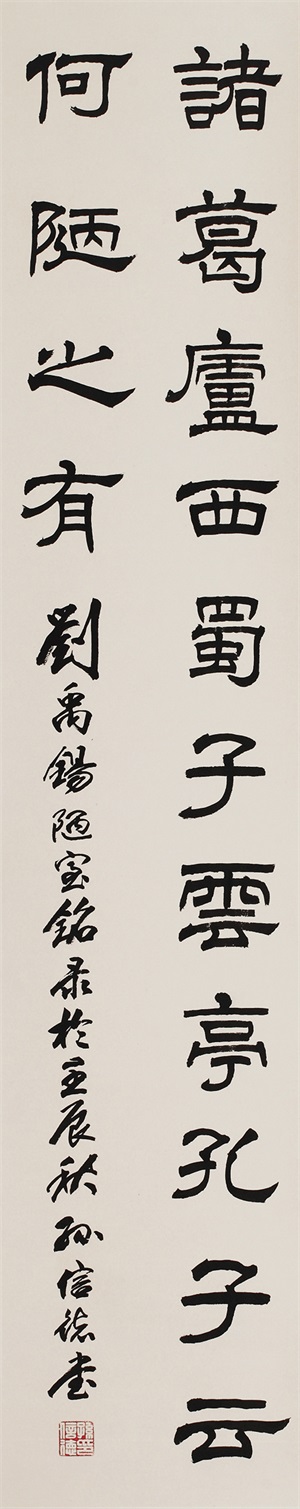 諸葛廬西蜀子雲亭孔子云
何陋之有
劉禹錫陋室銘录於壬辰秋孙信德书